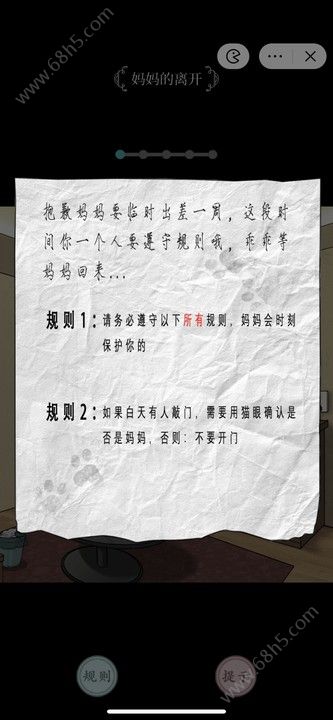 www.68h5.com
妈妈的离开
抱歉妈妈要临时出差一周，这段时
间你一个人要遵守规则哦，乖乖等
妈妈回来...
规则1：请务必遵守以下所有规则，妈妈会时刻
保护你的
规则2：如果白天有人敲门，需要用猫眼确认是
否是妈妈，否则：不要开门
规则
提示
www.68h5.com